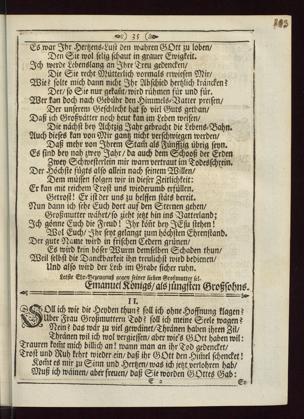 35
Es war Ihr Hertzens-Lust den wahren GOtt zu loben/
Den Sie wol selig schaut in grauer Ewigkeit.
Ich werde Lebenslang an Ihre Treu gedencken/
Die Sie recht Mütterlich vormals erwiesen Mir/
Wie? solte mich dann nicht Ihr Abschied hertzlich kräncken?
Der/ so Sie nur gekañt/ wird rühmen für und für.
Wer kan doch nach Gebühr den Himmels-Vatter preisen/
Der unserem Geschlecht hat so viel Guts gethan/
Daß ich Großvätter noch heut kan im Leben weisen/
Die nächst der Achtzig Jahr gebracht die Lebens-Bahn.
Auch dieses kan von Mir gantz nicht verschwiegen werden/
Daß mehr von Ihrem Stam als Fünffzig übrig seyn.
Es sind bey nah zwey Jahr/ da auch dem Schooß der Erden
Zwey Schwesterlein mit warn vertraut im Todesschrein.
Der Höchste fügts also allein nach seinem Willen/
Dem müssen folgen wir in dieser Zeitlichkeit:
Er kan mit reichem Trost uns wiederumb erfüllen/
Getrost! Er ist der uns zu helffen stäts bereit.
Nun dann ich sehe Euch dort auf den Sternen gehen/
Großmutter wähet/ so zieht jetzt hin ins Vatterland;
Ich gönne Euch die Freud! Ihr könt bey JEsu stehen!
Wol Euch/ Ihr seyt gelangt zum höchsten Ehrenstand.
Der gute Name wird in frischen Edern grünen/
Es wird kein böser Wurm demselben Schaden thun/
Weil selbst die Danckbarkeit ihn treulichst wird bedienen/
Und also wird der Leib im Grabe sicher ruhn.
Letzte Ehr-Bezeugung gegen seiner lieben Großmutter sel.
Emanuel Königs/ als jüngsten Großsohns.
II.
SOll ich wie die Heyden thun? soll ich ohne Hoffnung klagen?
Uber Frau Großmuttern Tod? soll ich meine Seele wagen?
Nein! das wär zu viel gewäinet/ Thränen haben ihren Zil/
Thränen wil ich wol vergiessen/ aber wie's GOtt haben wil:
Trauren komt mich billich an! wann man an den Tod gedencket/
Trost und Ruh kehrt wieder ein/ daß ihr GOtt den Himel schencket!
Komt es mir zu Sinn und Hertzen/ was ich jetzt verlohren hab/
Muß ich wäinen/ aber freuen/ daß Sie worden GOttes Gab:
E 2